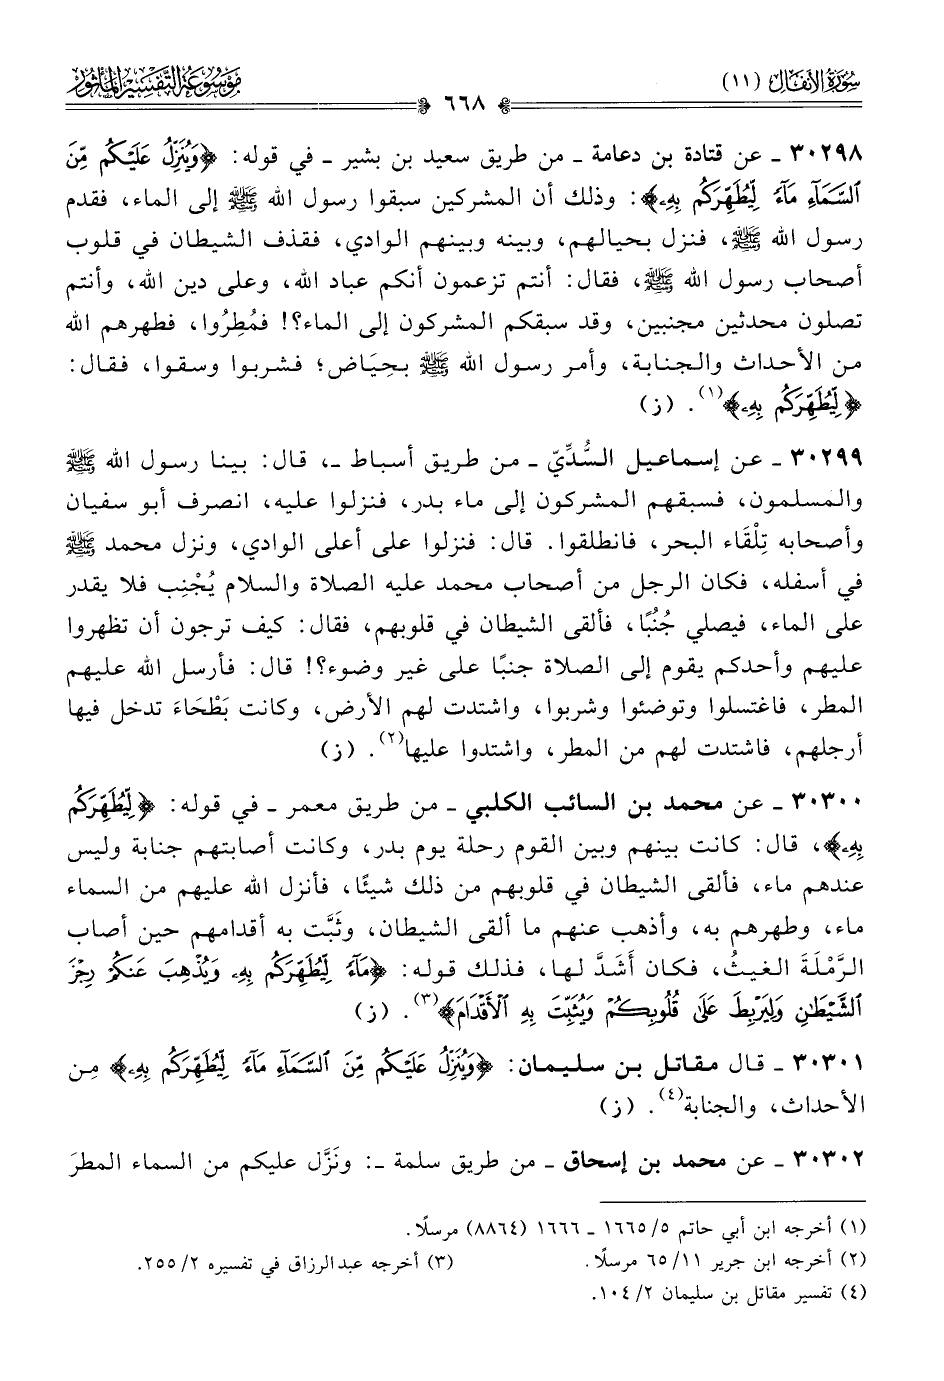 سُورَةُ الأَنفَال (١١)
مَوْسُوعَةُ التَّفْسِيرِ المَأْثُورِ
٦٦٨
٣٠٢٩٨ ـ عن قتادة بن دعامة ـ من طريق سعيد بن بشير ـ في قوله: ﴿وَيُنَزِّلُ عَلَيْكُم مِّنَ
ٱلسَّمَآءِ مَآءً لِّيُطَهِّرَكُم بِهِۦ﴾: وذلك أن المشركين سبقوا رسول الله ﷺ إلى الماء، فقدم
رسول الله ﷺ، فنزل بحيالهم، وبينه وبينهم الوادي، فقذف الشيطان في قلوب
أصحاب رسول الله ﷺ، فقال: أنتم تزعمون أنكم عباد الله، وعلى دين الله، وأنتم
تصلون محدثين مجنبين، وقد سبقكم المشركون إلى الماء؟! فمُطِرُوا، فطهرهم الله
من الأحداث والجنابة، وأمر رسول الله ﷺ بحِيَاض؛ فشربوا وسقوا، فقال:
﴿لِّيُطَهِّرَكُم بِهِۦ﴾(١). (ز)
٣٠٢٩٩ ـ عن إسماعيل السُّدِّيّ ـ من طريق أسباط ـ، قال: بينا رسول الله ﷺ
والمسلمون، فسبقهم المشركون إلى ماء بدر، فنزلوا عليه، انصرف أبو سفيان
وأصحابه تِلْقَاء البحر، فانطلقوا. قال: فنزلوا على أعلى الوادي، ونزل محمد ﷺ
في أسفله، فكان الرجل من أصحاب محمد عليه الصلاة والسلام يُجْنِب فلا يقدر
على الماء، فيصلي جُنُبًا، فألقى الشيطان في قلوبهم، فقال: كيف ترجون أن تظهروا
عليهم وأحدكم يقوم إلى الصلاة جنبًا على غير وضوء؟! قال: فأرسل الله عليهم
المطر، فاغتسلوا وتوضئوا وشربوا، واشتدت لهم الأرض، وكانت بَطْحَاءَ تدخل فيها
أرجلهم، فاشتدت لهم من المطر، واشتدوا عليها(٢). (ز)
٣٠٣٠٠ ـ عن محمد بن السائب الكلبي ـ من طريق معمر ـ في قوله: ﴿لِّيُطَهِّرَكُم
بِهِۦ﴾، قال: كانت بينهم وبين القوم رحلة يوم بدر، وكانت أصابتهم جنابة وليس
عندهم ماء، فألقى الشيطان في قلوبهم من ذلك شيئًا، فأنزل الله عليهم من السماء
ماء، وطهرهم به، وأذهب عنهم ما ألقى الشيطان، وثَبَّت به أقدامهم حين أصاب
الرَّمْلَةَ الغيثُ، فكان أَشَدَّ لها، فذلك قوله: ﴿مَآءً لِّيُطَهِّرَكُم بِهِۦ وَيُذْهِبَ عَنكُمْ رِجْزَ
ٱلشَّيْطَٰنِ وَلِيَرْبِطَ عَلَىٰ قُلُوبِكُمْ وَيُثَبِّتَ بِهِ ٱلْأَقْدَامَ﴾(٣). (ز)
٣٠٣٠١ ـ قال مقاتل بن سليمان: ﴿وَيُنَزِّلُ عَلَيْكُم مِّنَ ٱلسَّمَآءِ مَآءً لِّيُطَهِّرَكُم بِهِۦ﴾ مِن
الأحداث، والجنابة(٤). (ز)
٣٠٣٠٢ ـ عن محمد بن إسحاق ـ من طريق سلمة ـ: ونَزَّل عليكم من السماء المطرَ
(١) أخرجه ابن أبي حاتم ٥/ ١٦٦٥ ـ ١٦٦٦ (٨٨٦٤) مرسلًا.
(٢) أخرجه ابن جرير ١١/ ٦٥ مرسلًا. (٣) أخرجه عبدالرزاق في تفسيره ٢/ ٢٥٥.
(٤) تفسير مقاتل بن سليمان ٢/ ١٠٤.